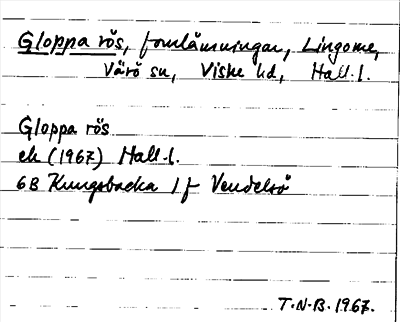 Gloppa rös, fornlämningar, Lingome,
Värö sn, Viske hd, Hall.l.
Gloppa rös
ek (1967) Hall.l.
6B Kungsbacka 1 f Vendelsö
T.N.B. 1967.